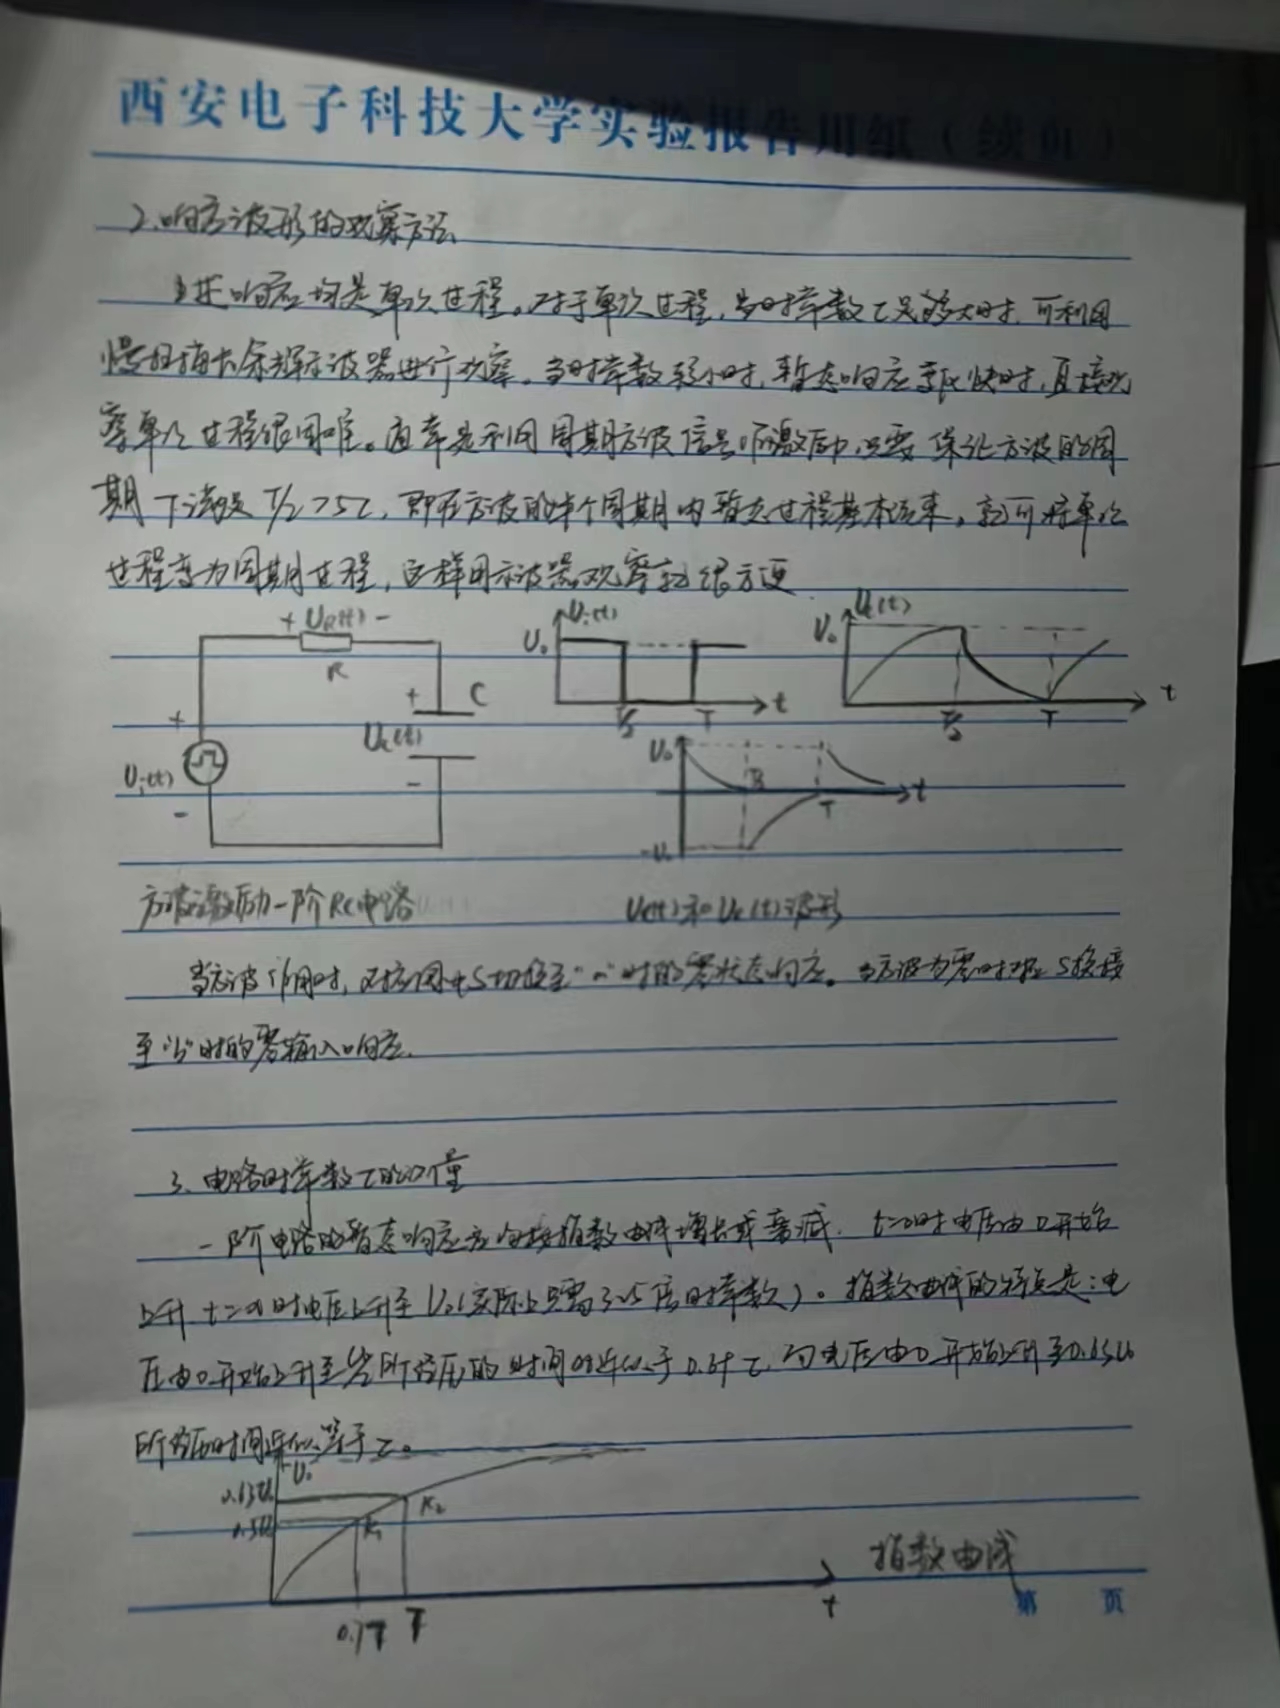 西安电子科技大学实验报告用纸（续页）
2.响应波形的观察方法
上述响应均是单次过程。对于单次过程，当时常数τ足够大时，可利用
慢扫描长余辉示波器进行观察。当时常数较小时，暂态响应变化快时，直接观
察单次过程很困难。通常是利用周期方波信号作激励，只要保证方波的周
期T满足T/2>5τ，即在方波的半个周期内暂态过程基本结束，就可将单次
过程变为周期过程，这样用示波器观察就很方便
+ UR(t) -
R
+
C
Uc(t)
-
+
Ui(t)
-
Ui(t)
U₀
T
t
Uc(t)
U₀
T
t
U₀
T
t
-U₀
方波激励一阶RC电路
波形
当方波作用时，对应图中S切换至"a"时的零状态响应。当方波为零时对应S换接
至"b"时的零输入响应.
3、电路时常数τ的测量
一阶电路的暂态响应应按指数曲线增长或衰减. t=0时电压由0开始
上升 t=∞时电压上升至U₀(实际上只需3~5倍时常数)。指数曲线的特点是:电
压由0开始上升至 所经历的时间 近似于 τ, 电压由0开始上升至0.63U₀
所经历时间近似等于τ。
U₀
0.63U₀
0.5U₀
K₁
K₂
0.7τ
τ
t
指数曲线
第 页